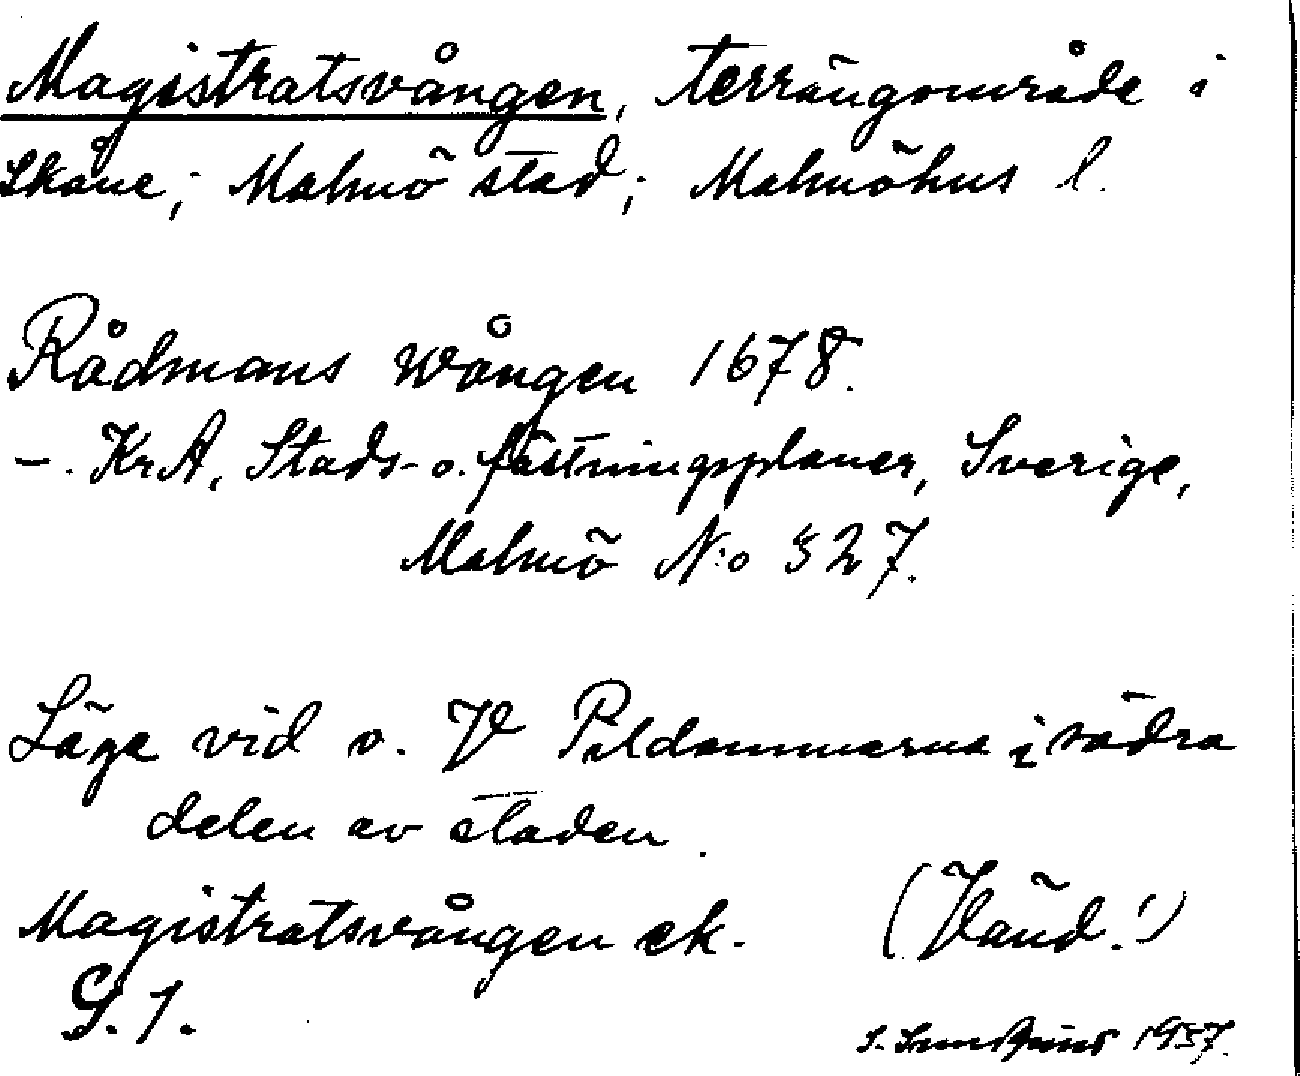 Magistratsvången, terrängområde i
Skåne; Malmö stad; Malmöhus l.
Rådmans Wången 1678.
–. KrA, Stads- o. fästningsplaner, Sverige,
Malmö N:o 327.
Läge vid o. V Pildammarna i södra
delen av staden.
Magistratsvången ek.
S. 1.
(Vänd!)
S. 1957.